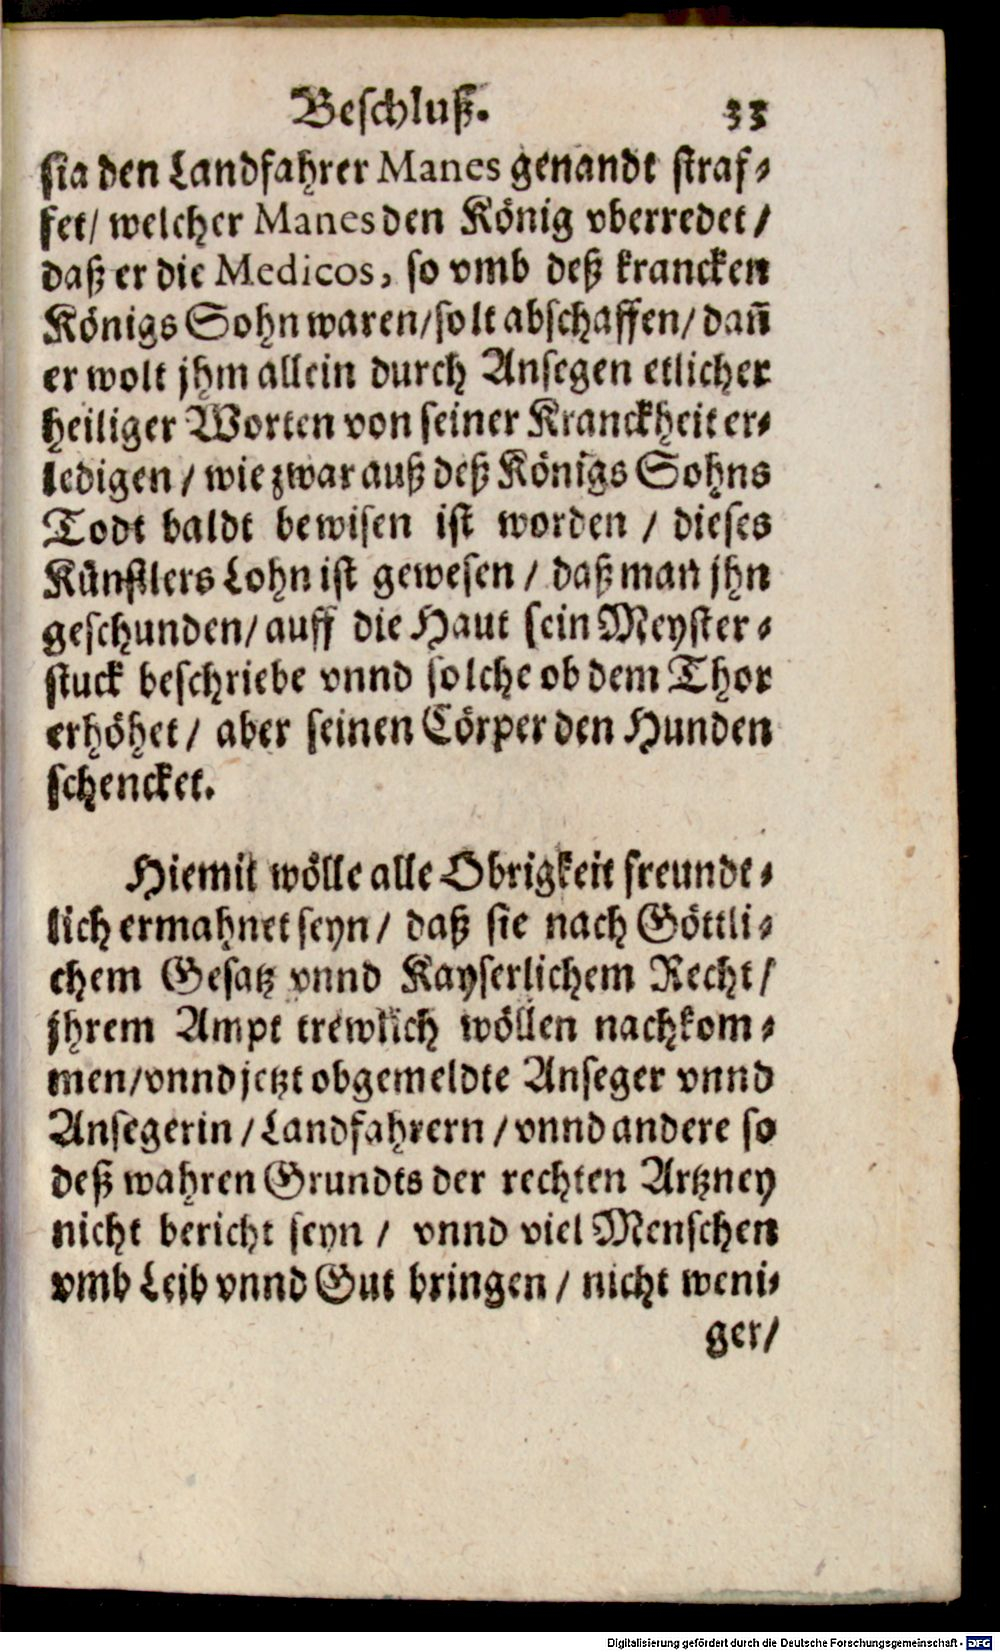 Beschluß. 33
sia den Landfahrer Manes genandt straf-
fet/ welcher Manes den König vberredet/
daß er die Medicos, so vmb deß krancken
Königs Sohn waren/solt abschaffen/dañ
er wolt jhm allein durch Ansegen etlicher
heiliger Worten von seiner Kranckheit er-
ledigen / wie zwar auß deß Königs Sohns
Todt baldt bewisen ist worden / dieses
Künstlers Lohn ist gewesen / daß man jhn
geschunden/auff die Haut sein Meyster-
stuck beschriebe vnnd solche ob dem Thor
erhöhet/ aber seinen Cörper den Hunden
schencket.
Hiemit wölle alle Obrigkeit freundt-
lich ermahnet seyn/ daß sie nach Göttli-
chem Gesatz vnnd Kayserlichem Recht/
jhrem Ampt trewlich wöllen nachkom-
men/vnnd jetzt obgemeldte Anseger vnnd
Ansegerin/Landfahrern/vnnd andere so
deß wahren Grundts der rechten Artzney
nicht bericht seyn/ vnnd viel Menschen
vmb Leib vnnd Gut bringen/nicht weni-
ger/
Digitalisierung gefördert durch die Deutsche Forschungsgemeinschaft - DFG